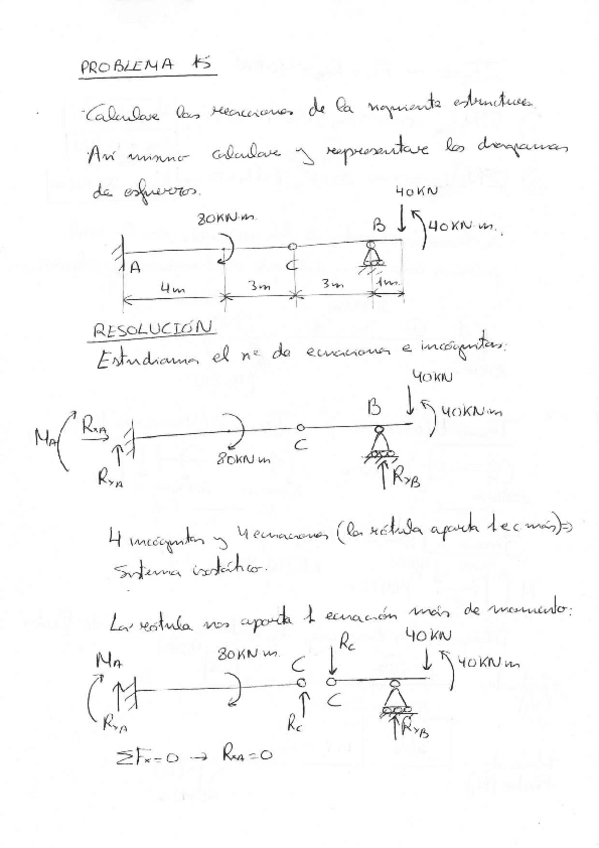 PROBLEMA 15
Calcular las reacciones de la siguiente estructura.
Así mismo calcular y representar los diagramas
de esfuerzos.
40KN
80KN·m
B
40KN·m.
A
C
4m
3m
3m
1m
RESOLUCIÓN
Estudiamos el nº de ecuaciones e incógnitas:
40KN
MA
RxA
B
40KN·m
80KN·m
C
RyA
RyB
4 incógnitas y 4 ecuaciones (la rótula aporta 1 ec más) =>
Sistema isostático.
La rótula nos aporta 1 ecuación más de momento:
MA
80KN·m
C
Rc
40KN
40KN·m
C
RyA
Rc
RyB
ΣFx=0 → RxA=0